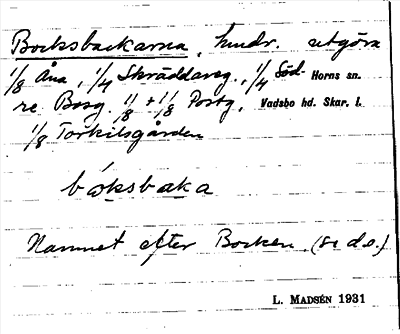 Bocksbackarna, hmdr. utgöra
1/8 Åna, 1/4 Skräddareg., 1/4 Söd- Horns sn.
re Bosg. 1/8 + 1/8 Postg, Vadsbo hd. Skar. l.
1/8 Torkilsgården
båksbaka
Namnet efter Bocken. (se d.o.)
L. MADSÉN 1931